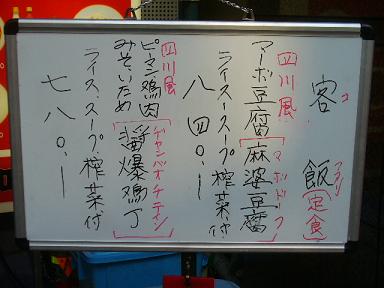 客飯[定食]
コ ファン
四川風
マーボ豆腐[麻婆豆腐]
マ ボ ド フ
ライス・スープ搾菜付
八四〇.ー
四川風
ピーマン鶏肉
みそいため
[醤爆鶏丁]
ジャンバオチーティン
ライス、スープ、搾菜付
七八〇.ー